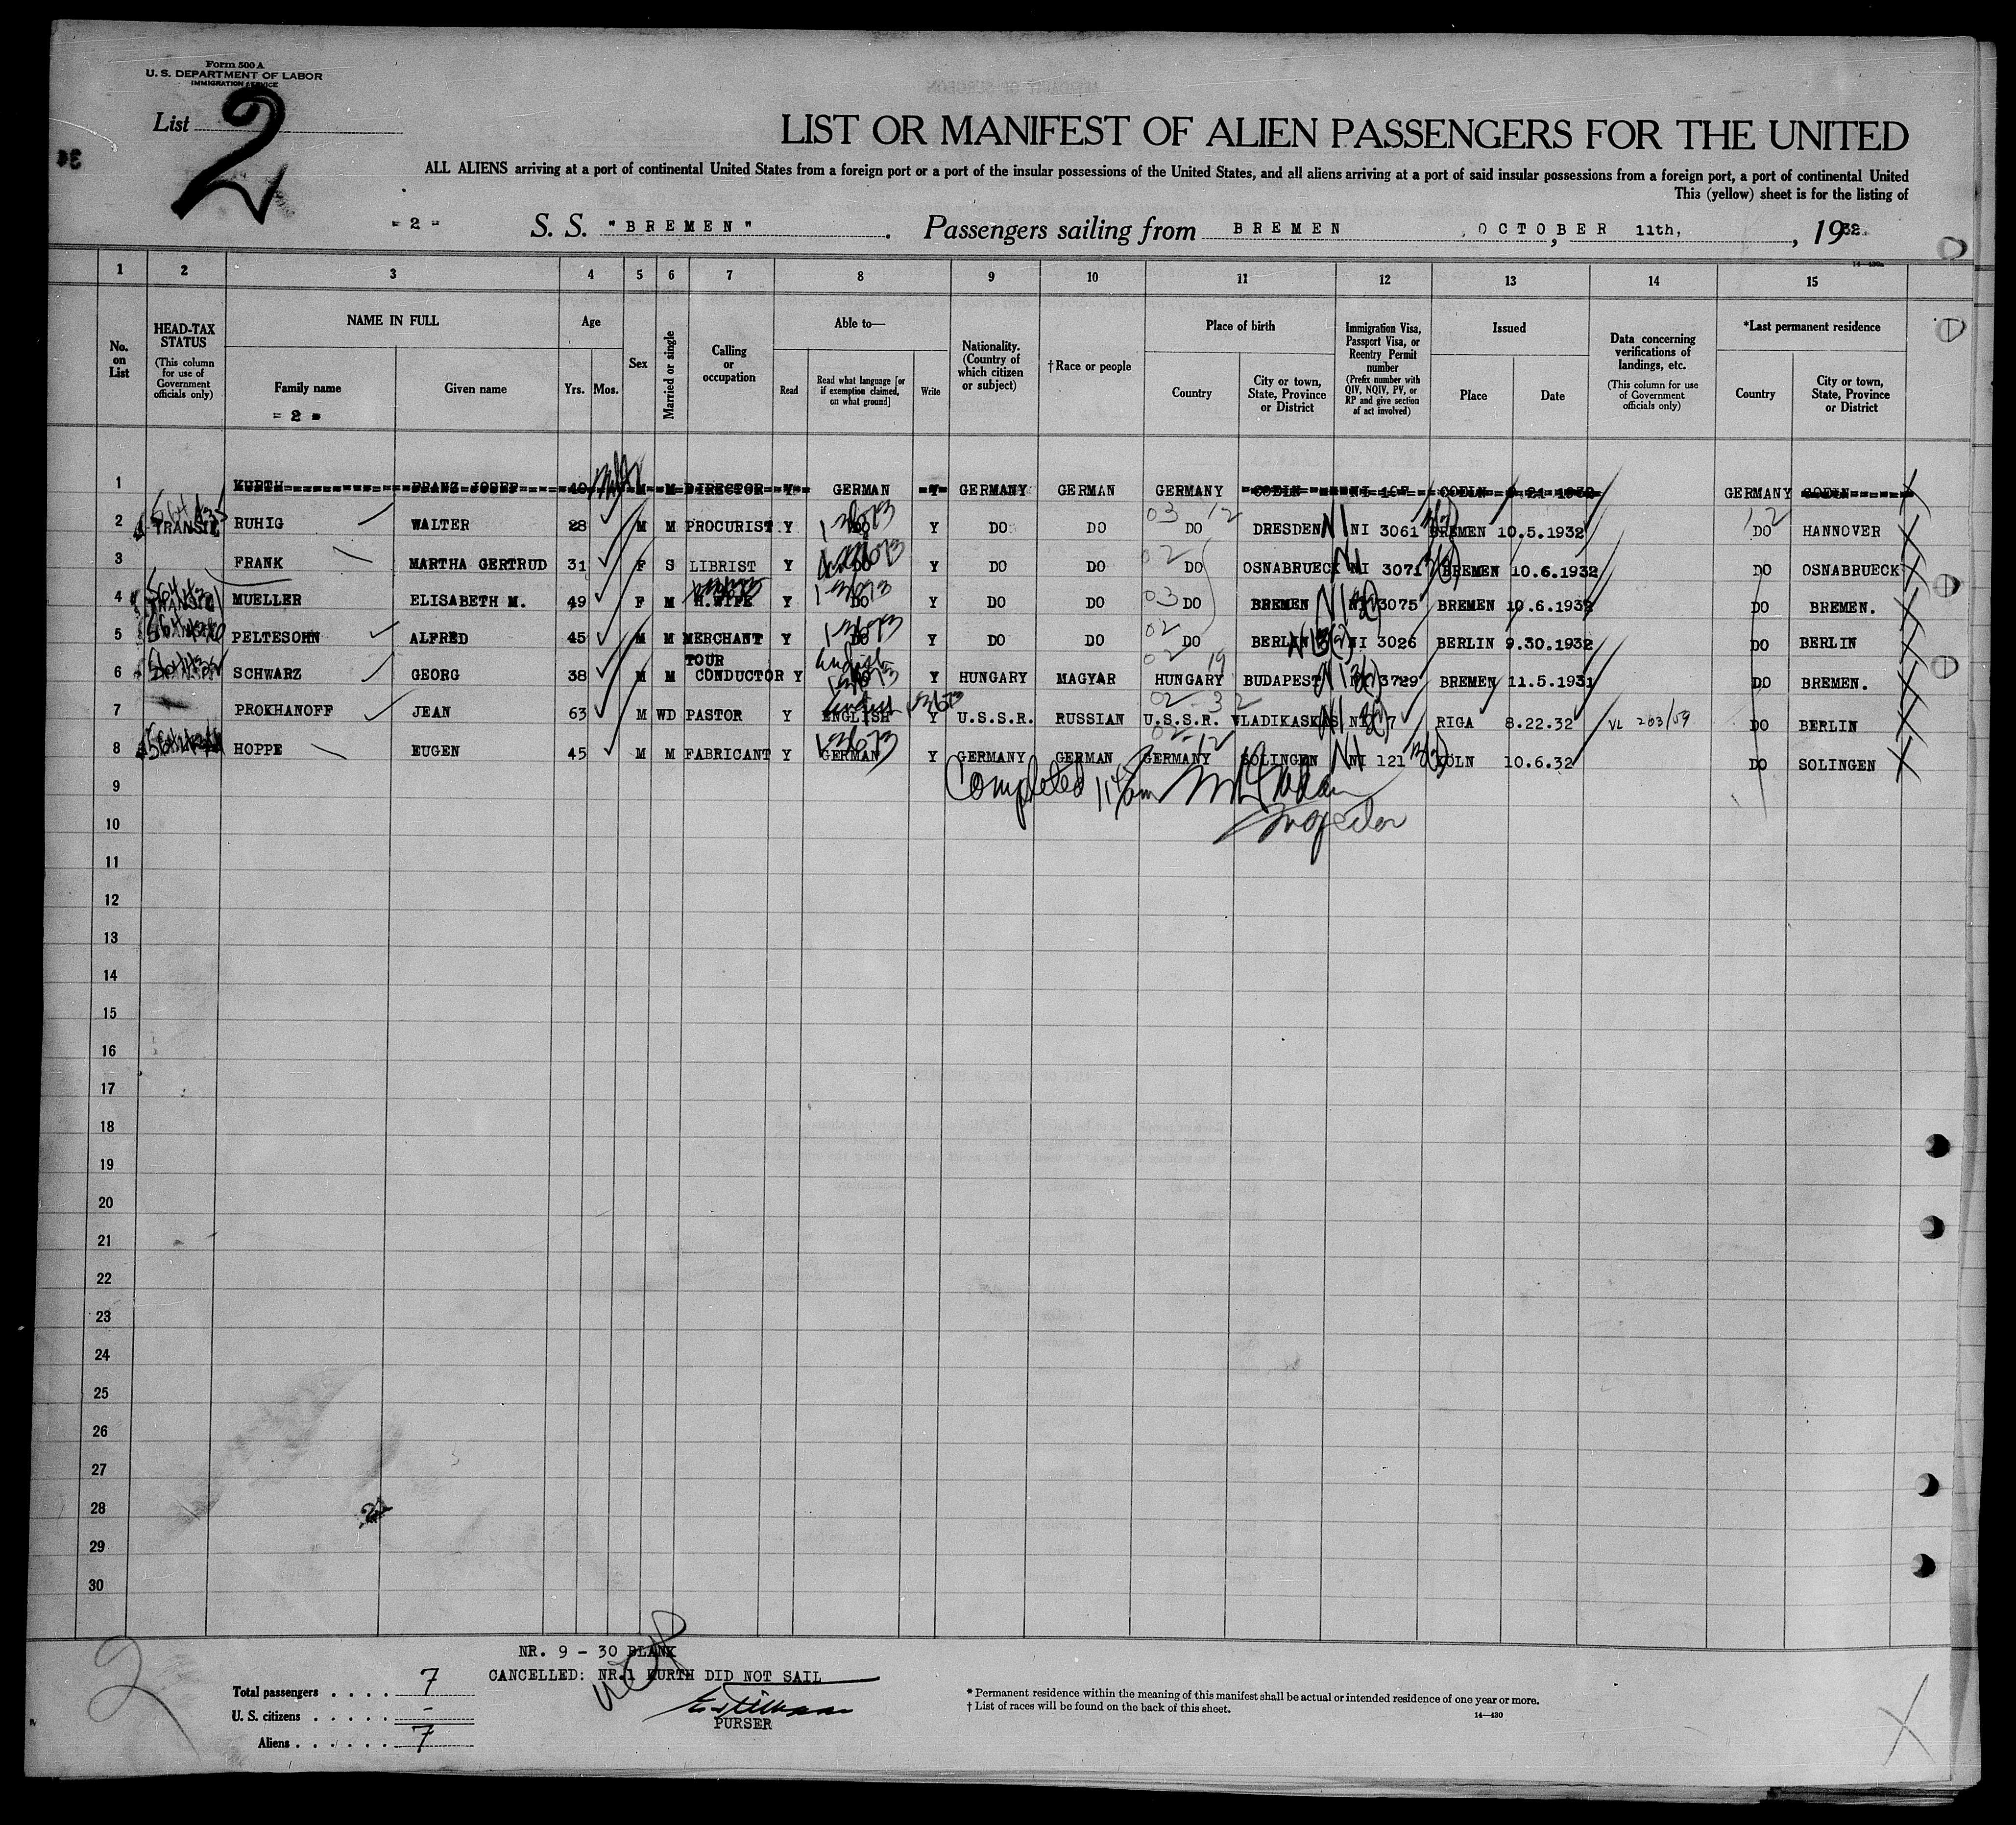 Form 500 A
U. S. DEPARTMENT OF LABOR
IMMIGRATION SERVICE
List 2
LIST OR MANIFEST OF ALIEN PASSENGERS FOR THE UNITED
ALL ALIENS arriving at a port of continental United States from a foreign port or a port of the insular possessions of the United States, and all aliens arriving at a port of said insular possessions from a foreign port, a port of continental United
This (yellow) sheet is for the listing of
- 2 - S. S. "BREMEN". Passengers sailing from BREMEN, OCTOBER 11th, 1932.
14—430a
1 2 3 4 5 6 7 8 9 10 11 12 13 14 15
No. on List
HEAD-TAX STATUS
(This column for use of Government officials only)
NAME IN FULL
Family name
Given name
- 2 -
Age
Yrs. Mos.
Sex
Married or single
Calling or occupation
Able to—
Read
Read what language [or if exemption claimed, on what ground]
Write
Nationality. (Country of which citizen or subject)
†Race or people
Place of birth
Country
City or town, State, Province or District
Immigration Visa, Passport Visa, or Reentry Permit number
(Prefix number with QIV, NQIV, PV, or RP and give section of act involved)
Issued
Place
Date
Data concerning verifications of landings, etc.
(This column for use of Government officials only)
*Last permanent residence
Country
City or town, State, Province or District
1 KURTH FRANZ JOSEF 40 M M DIRECTOR Y GERMAN Y GERMANY GERMAN GERMANY COELN NI 107 COELN 9.21.1932 GERMANY COELN
2 TRANSIT RUHIG WALTER 28 M M PROCURIST Y DO Y DO DO DO DRESDEN NI 3061 BREMEN 10.5.1932 DO HANNOVER
3 FRANK MARTHA GERTRUD 31 F S LIBRIST Y DO Y DO DO DO OSNABRUECK NI 3071 BREMEN 10.6.1932 DO OSNABRUECK
4 TRANSIT MUELLER ELISABETH M. 49 F M H.WIFE Y DO Y DO DO DO BREMEN NI 3075 BREMEN 10.6.1932 DO BREMEN.
5 TRANSIT PELTESOHN ALFRED 45 M M MERCHANT Y DO Y DO DO DO BERLIN NI 3026 BERLIN 9.30.1932 DO BERLIN
6 TRANSIT SCHWARZ GEORG 38 M M TOUR CONDUCTOR Y DO Y HUNGARY MAGYAR HUNGARY BUDAPEST NI 3729 BREMEN 11.5.1931 DO BREMEN.
7 PROKHANOFF JEAN 63 M WD PASTOR Y ENGLISH Y U.S.S.R. RUSSIAN U.S.S.R. WLADIKASKAS NI 7 RIGA 8.22.32 VL 203/59 DO BERLIN
8 HOPPE EUGEN 45 M M FABRICANT Y GERMAN Y GERMANY GERMAN GERMANY SOLINGEN NI 121 KÖLN 10.6.32 DO SOLINGEN
Completed
Inspector
9
10
11
12
13
14
15
16
17
18
19
20
21
22
23
24
25
26
27
28
29
30
NR. 9 - 30 BLANK
CANCELLED: NR.1 KURTH DID NOT SAIL
PURSER
Total passengers . . . . 7
U. S. citizens . . . . . -
Aliens . . . . . . 7
* Permanent residence within the meaning of this manifest shall be actual or intended residence of one year or more.
† List of races will be found on the back of this sheet.
14—430
2